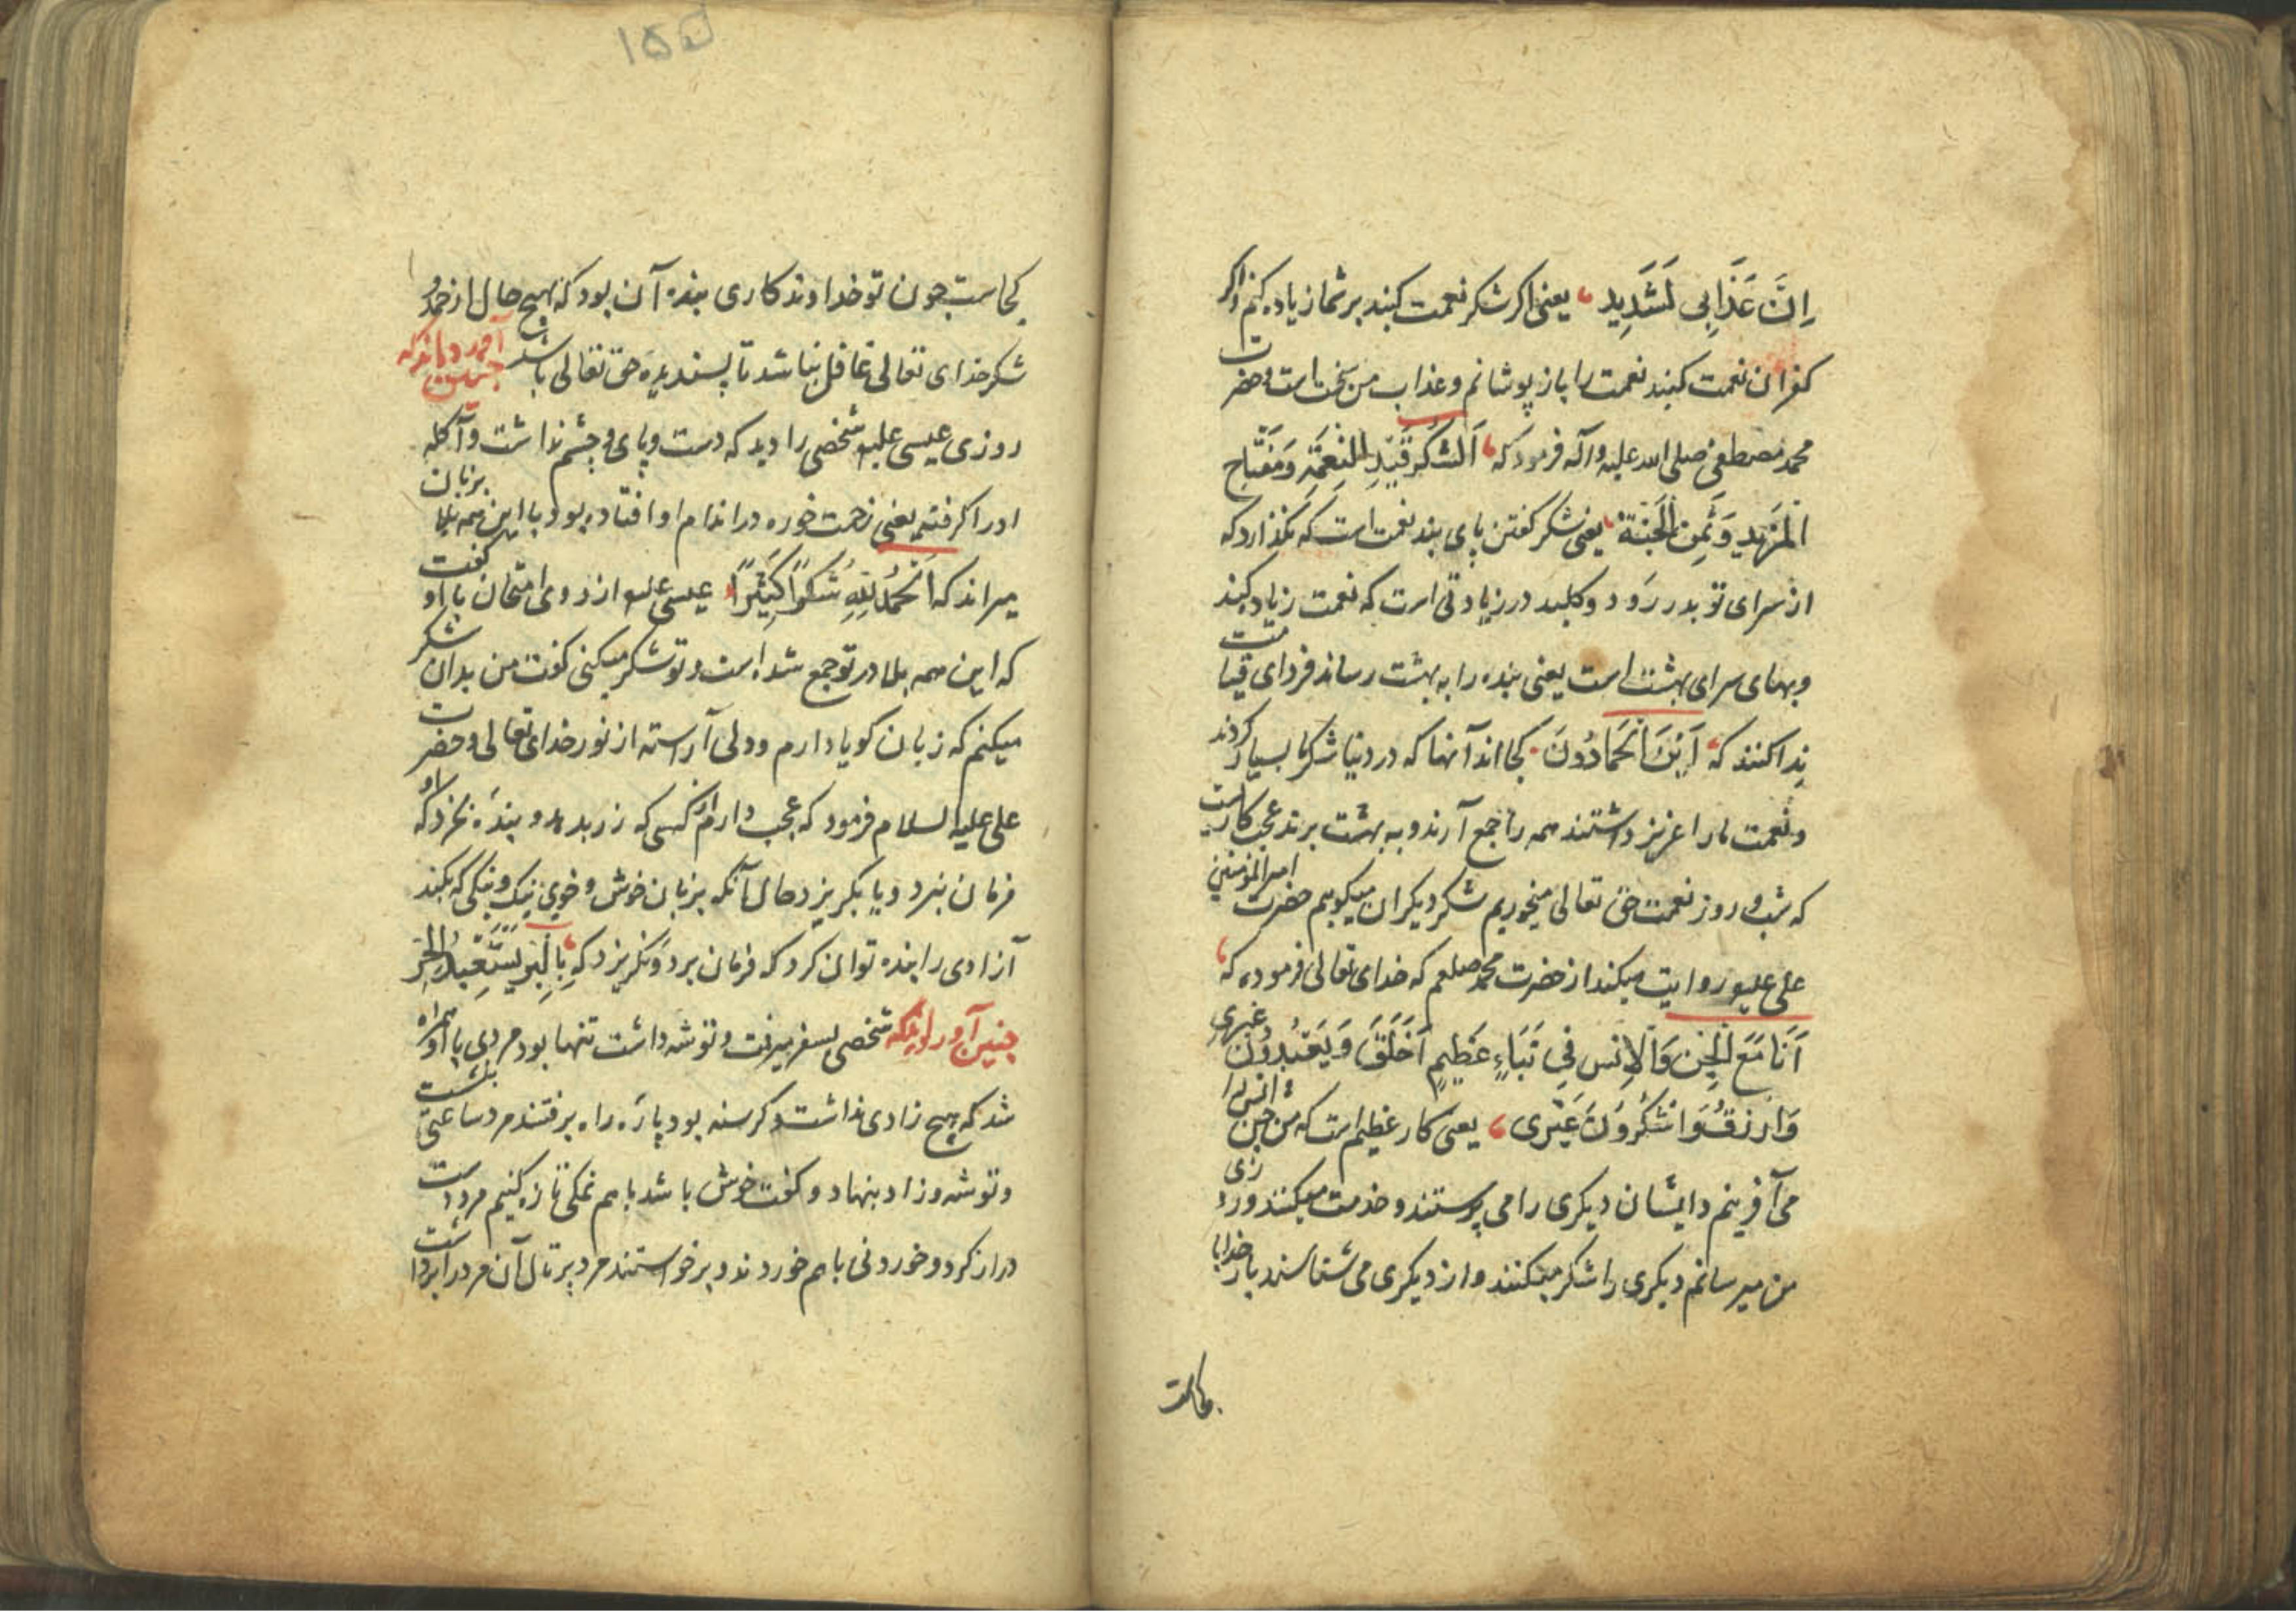 اِنَّ عَذَابِی لَشَدِید یعنی اکر شکر نعمت کنید بر شما زیاده کنم و اکر
کفران نعمت کنید نعمت را باز پوشانم و عذاب من سخت است و حضرت
محمد مصطفی صلی الله علیه و آله فرمود که اَلشُکرُ قَیدٌ لِلنِعمَةِ وَ مِفتَاح
المَزِیدِ وَ ثَمَن الجَنَة یعنی شکر کفتن پای بند نعمت است که نکذارد که
از سرای تو بدر رود و کلید در زیادتی است که نعمت زیاد کند
و بهای سرای بهشت است یعنی بنده را به بهشت رساند فردای قیامت
ندا کنند که اَینَ الحَمَادُونَ کجا اند آنها که در دنیا شکرها بسیار کردند
و نعمت ما را عزیز داشتند همه را جمع آرند و به بهشت برند عجب کاریست
که شب و روز نعمت حق تعالی میخوریم شکر دیکران میکوییم حضرت امیر المؤمنین
علی علیه روایت میکند از حضرت محمد صلعم که خدای تعالی فرموده که
اَنَا مَعَ الجِن وَ الاِنس فِی نَبَاءٍ عَظِیمٍ اَخلَقَ وَ یَعبُدُونَ غیری
وَ ارزقُ وَ اشکُرُونَ غَیری یعنی کار عظیم است که من جن و انس را
می آفرینم و ایشان دیکری را می پرستند و خدمت میکنند و روزی
من میرسانم دیکری را شکر میکنند و از دیکری می شناسند بار خدایا
کجاست
۱۵۵
کجاست چون تو خداوند کاری بنده آن بود که بهیچ حال از حمد و
شکر خدای تعالی غافل نباشد تا پسندیده حق تعالی باشد چنین آورده اند که
روزی عیسی علیه شخصی را دید که دست و پای و چشم نداشت و آکله
اورا کرفته یعنی زحمت خوره در اندام او افتاده بود با این همه بلا بر زبان
میراند که اَلحَمدُ لِلّهِ شُکرًا کَثِیرًا عیسی علیه از روی امتحان با او کفت
که این همه بلا در تو جمع شده است و تو شکر میکنی کفت من بدان شکر
میکنم که زبان کویا دارم و دلی آراسته از نور خدای تعالی و حضرت
علی علیه السلام فرمود که عجب دارم از کسی که زر بدهد و بنده بخرد که او
فرمان نبرد و یا بکریزد حال آنکه بزبان خوش و خوی نیک و نیکی که بکند
آزادی را بنده توان کرد که فرمان برد و نکریزد که بِالبِرِ یُستَعبَدُ الحُر
چنین آورده اند که شخصی بسفر میرفت و توشه داشت تنها بود مردی با او همراه
شد که هیچ زادی نداشت و کرسنه بود پاره راه برفتند مرد ساعتی بنشست
و توشه و زاد بنهاد و کفت خوش باشد با هم نمکی تازه کنیم مرد دست
دراز کرد و خوردنی با هم خوردند و برخواستند مرد پرتال آن مرد را برداشت